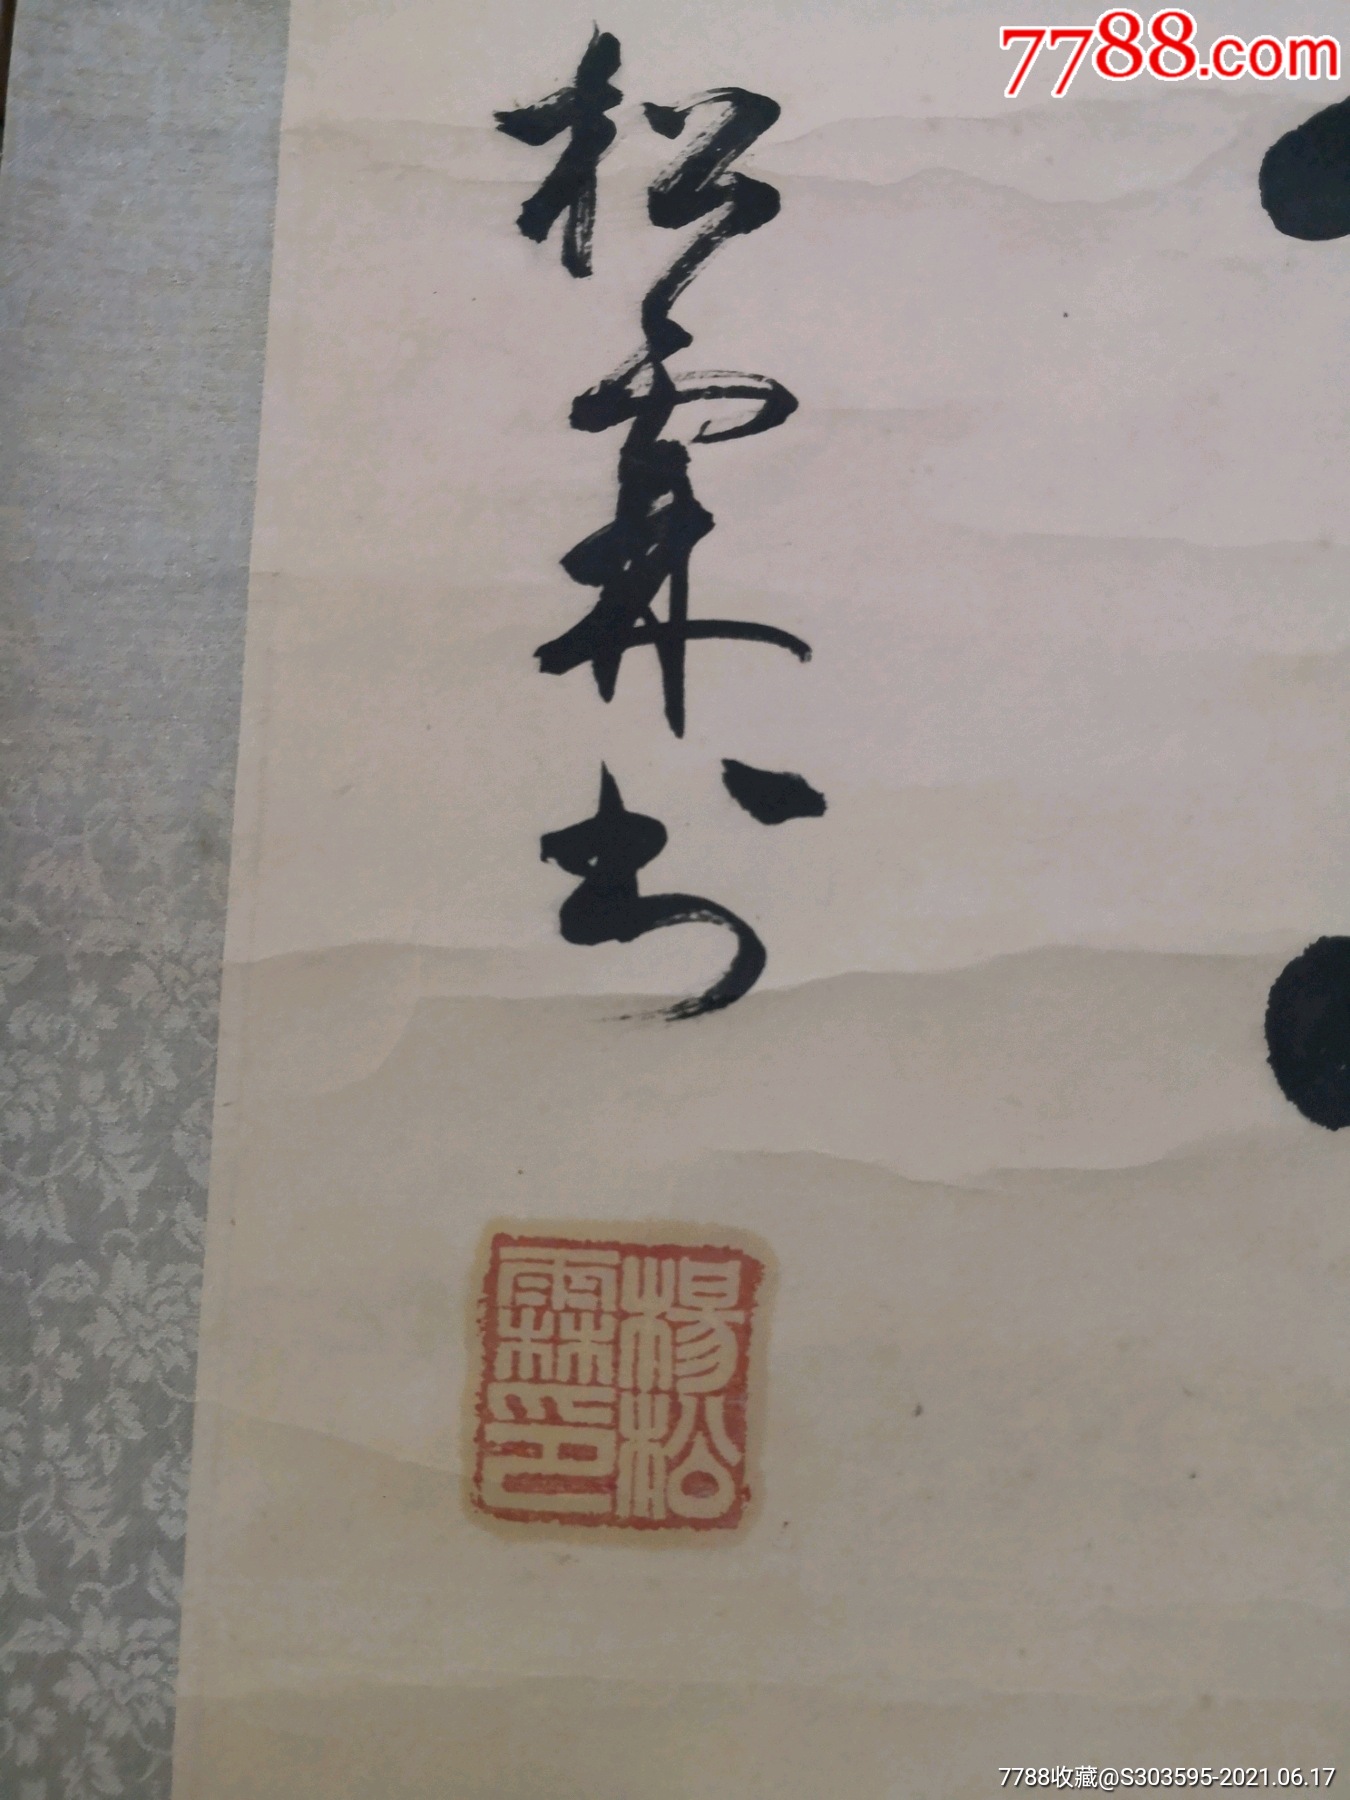 7788.com
松霖书
楊松
霖印
7788收藏@S303595-2021.06.17